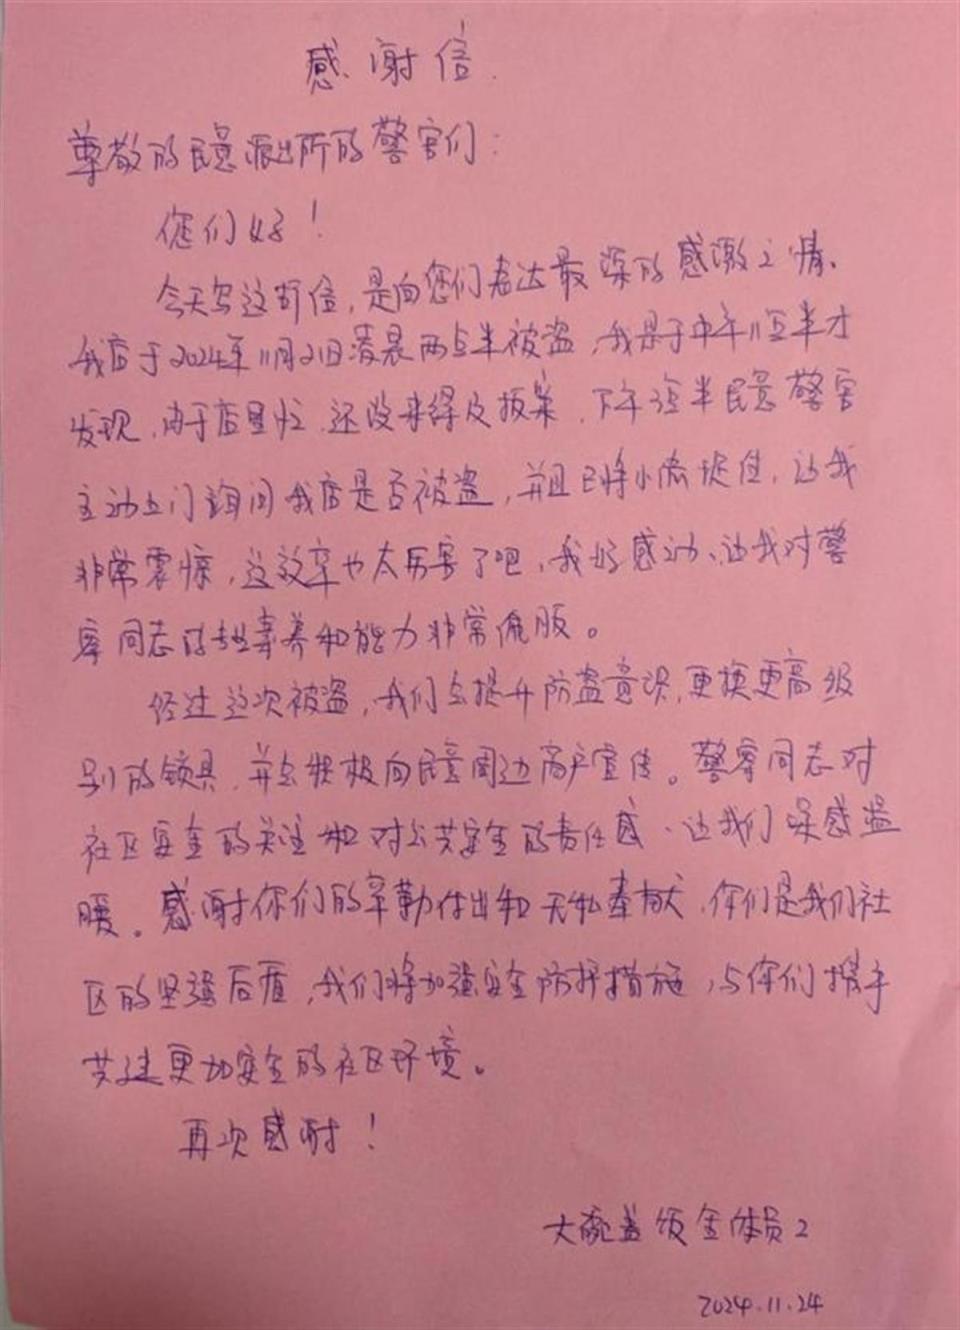 感谢信
尊敬的民意派出所的警官们：
您们好！
今天写这封信，是向您们表达最深的感激之情、
我店于2024年11月21日凌晨两点半被盗，我是于中午11点半才
发现，由于店里忙，还没来得及报案，下午3点半民意警官
主动上门询问我店是否被盗，并且已将小偷捉住，让我
非常震惊，这效率也太厉害了吧，我好感动、让我对警
察同志的专业素养和能力非常佩服。
经过这次被盗，我们会提升防盗意识，更换更高级
别的锁具，并会积极向民意周边商户宣传。警察同志对
社区安全的关注和对公共安全的责任感、让我们深感温
暖。感谢你们的辛勤付出和无私奉献，你们是我们社
区的坚强后盾，我们将加强安全防护措施，与你们携手
共建更加安全的社区环境。
再次感谢！
大碗盖饭全体员工
2024.11.24